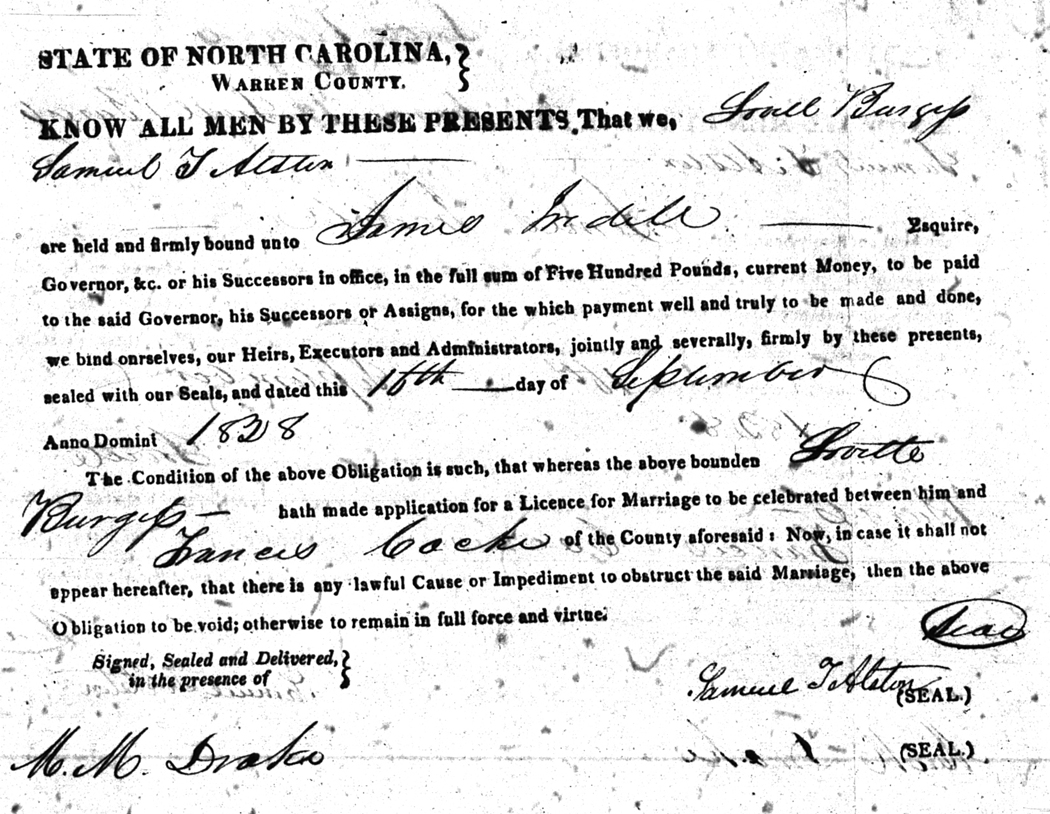 STATE OF NORTH CAROLINA,
WARREN COUNTY.
KNOW ALL MEN BY THESE PRESENTS, That we, Burgess
Samuel T Alston
are held and firmly bound unto James Iredell Esquire,
Governor, &c. or his Successors in office, in the full sum of Five Hundred Pounds, current Money, to be paid
to the said Governor, his Successors or Assigns, for the which payment well and truly to be made and done,
we bind onrselves, our Heirs, Executors and Administrators, jointly and severally, firmly by these presents,
sealed with our Seals, and dated this 16th day of September
Anno Domini 1828
The Condition of the above Obligation is such, that whereas the above bounden
Burgess hath made application for a Licence for Marriage to be celebrated between him and
Frances Cocke of the County aforesaid: Now, in case it shall not
appear hereafter, that there is any lawful Cause or Impediment to obstruct the said Marriage, then the above
Obligation to be void; otherwise to remain in full force and virtue.
Signed, Sealed and Delivered,
in the presence of
Seal
Samuel T Alston (SEAL.)
M. M. Drake (SEAL.)